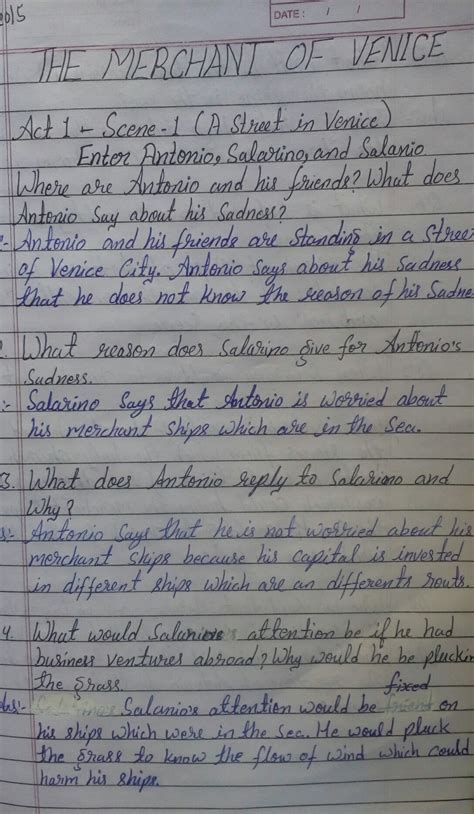 2015
DATE: / /
THE MERCHANT OF VENICE
Act 1 - Scene-1 (A Street in Venice)
Enter Antonio, Salarino, and Salanio
Where are Antonio and his friends? What does
Antonio Say about his Sadness?
:- Antonio and his friends are Standing in a Stree
of Venice City. Antonio Says about his Sadness
that he does not know the reason of his Sadne
What reason does Salarino give for Antonio's
Sadness.
:- Salarino Says that Antonio is worried about
his merchant Ships which are in the Sea.
3. What does Antonio reply to Salarino and
Why?
s:- Antonio Says that he is not worried about his
merchant Ships because his capital is invested
in different Ships which are on differents routs.
4. What would Salanio's attention be if he had
business ventures abroad? Why would he be pluckin
the grass.
fixed
Ans:- Salanio's attention would be on
his ships which were in the Sea. He would pluck
the grass to know the flow of wind which could
harm his ships.